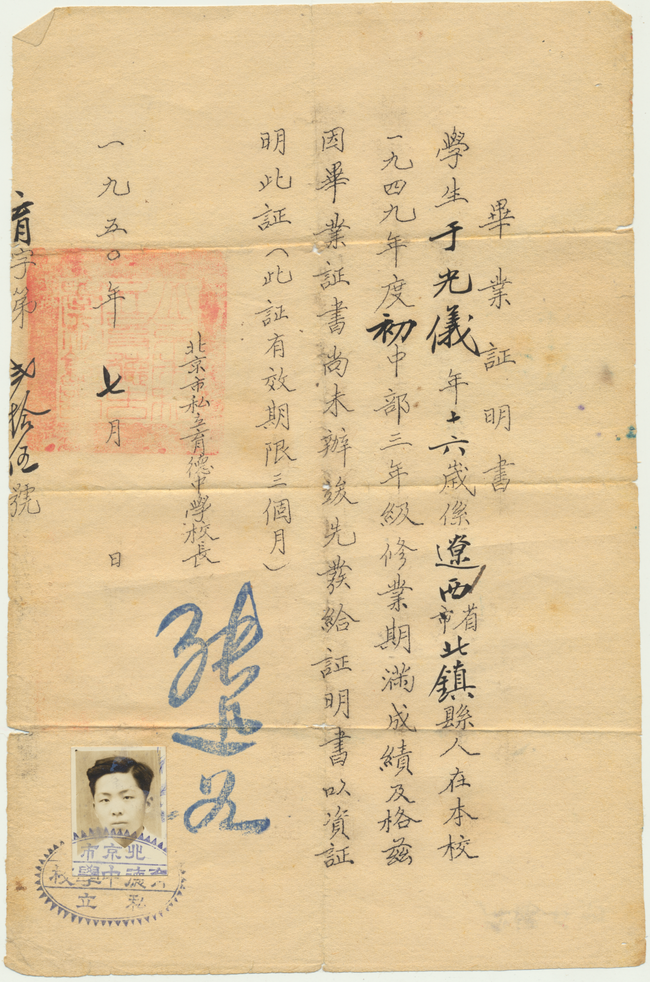 畢業証明書
學生于光儀年十六歲係遼西省市北鎮縣人在本校
一九四九年度初中部三年級修業期滿成績及格茲
因畢業証書尚未辦竣先發給証明書以資証
明此証(此証有效期限三個月)
北京市私立育德中學校長
一九五〇年七月 日
育字第 弍拾伍號
北京市
育德中學校
私立